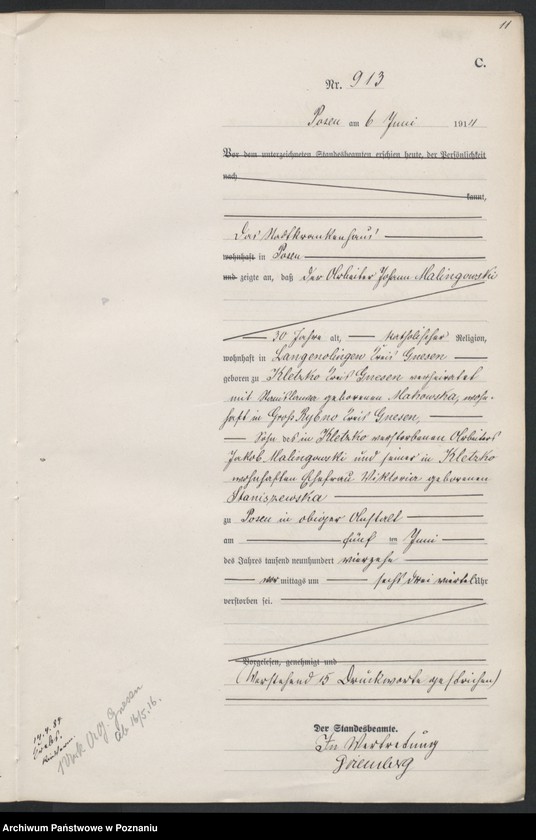 11
C.
Nr. 913
Posen am 6 Juni 1914
Vor dem unterzeichneten Standesbeamten erschien heute, der Persönlichkeit
nach
kannt,
Das Stadtkrankenhaus
wohnhaft in Posen
und zeigte an, daß der Arbeiter Johann Malingowski
30 Jahre alt, katholischer Religion,
wohnhaft in Langenolingen Kreis Gnesen
geboren zu Kletzko Kreis Gnesen verheiratet
mit Stanislawa geborenen Makowska, wohn-
haft in Groß Rybno Kreis Gnesen,
Sohn des in Kletzko verstorbenen Arbeiters
Jakob Malingowski und seiner in Kletzko
wohnhaften Ehefrau Viktoria geborenen
Staniszewska
zu Posen in obiger Anstalt
am fünf ten Juni
des Jahres tausend neunhundert vierzehn
vor mittags um sechs drei viertel Uhr
verstorben sei.
Vorgelesen, genehmigt und
(Vorstehend 15 Druckworte gestrichen)
Der Standesbeamte.
In Vertretung
14.4.54
Gnesen
ab 16/5.16.
Archiwum Państwowe w Poznaniu